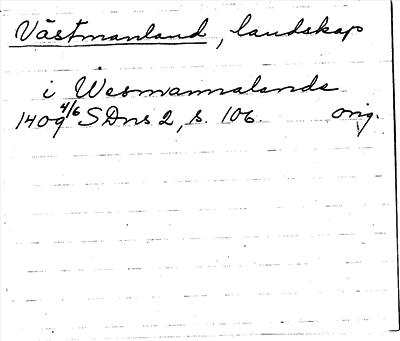 Västmanland, landskap
i Wesmannalande
1409 4/6 SDns 2, s. 106. orig.